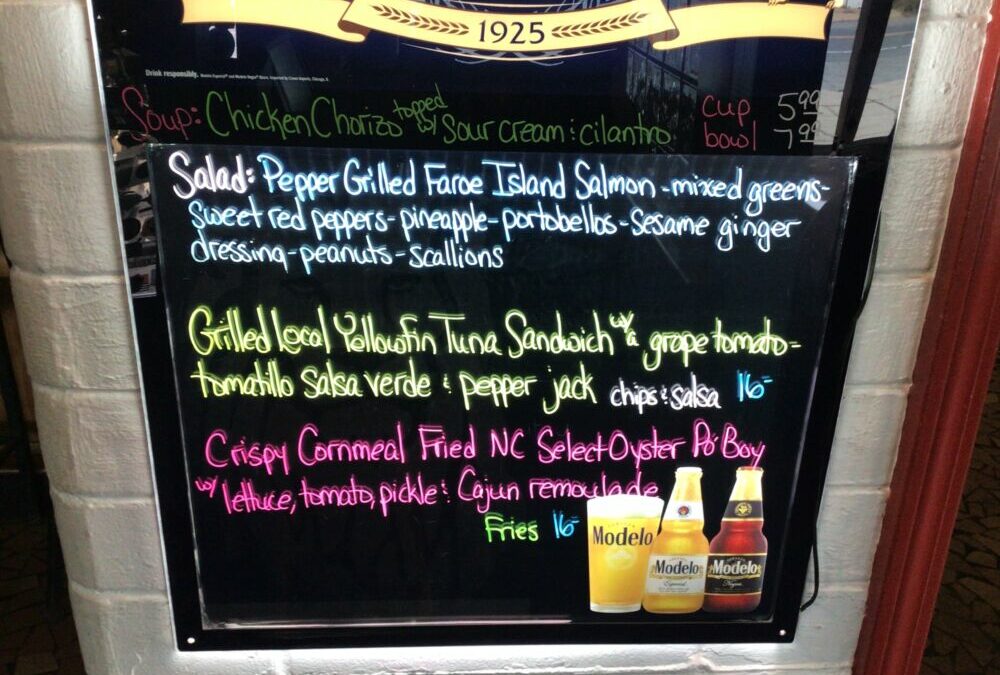 1925
Drink responsibly.
Soup: Chicken Chorizo topped w/ sour cream & cilantro cup 5.99
bowl 7.99
Salad: Pepper Grilled Faroe Island Salmon - mixed greens -
sweet red peppers - pineapple - portobellos - sesame ginger
dressing - peanuts - scallions
Grilled Local Yellowfin Tuna Sandwich w/ a grape tomato -
tomatillo salsa verde & pepper jack chips & salsa 16-
Crispy Cornmeal Fried NC Select Oyster Po' Boy
w/ lettuce, tomato, pickle & Cajun remoulade
Fries 16-
Modelo
Modelo
Especial
Modelo
Negra